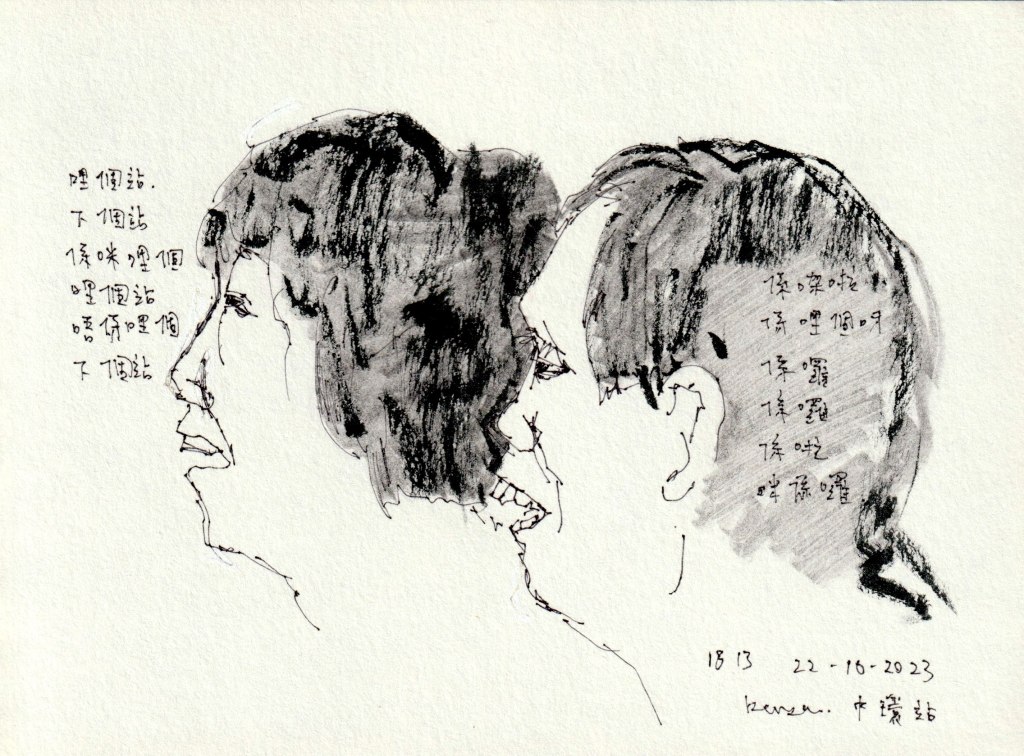 哩個站.
下個站
係咪哩個
哩個站
唔係哩個
下個站
係㗎啦
係哩個呀
係囉
係囉
係啦
咪係囉
1813 22-10-2023
中環站